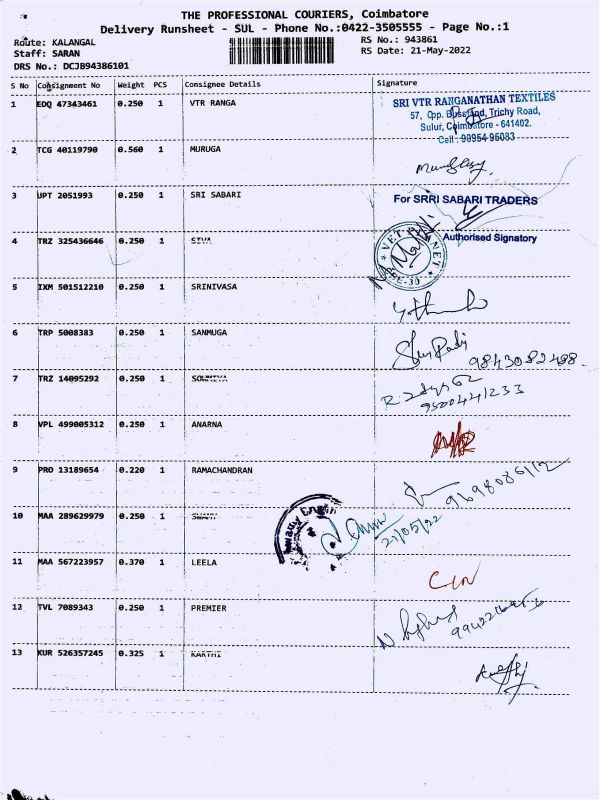 THE PROFESSIONAL COURIERS, Coimbatore
Delivery Runsheet - SUL - Phone No.:0422-3505555 - Page No.:1
Route: KALANGAL
Staff: SARAN
DRS No.: DCJB94386101
RS No.: 943861
RS Date: 21-May-2022
S No Consignment No Weight PCS Consignee Details Signature
1 EDQ 47343461 0.250 1 VTR RANGA
SRI VTR RANGANATHAN TEXTILES
57, Opp. Bus Stand, Trichy Road,
Sulur, Coimbatore - 641402.
Cell : 90954 96083
2 TCG 40119790 0.560 1 MURUGA
3 UPT 2051993 0.250 1 SRI SABARI
For SRRI SABARI TRADERS
Authorised Signatory
4 TRZ 325436646 0.250 1 SIVA
5 IXM 501512210 0.250 1 SRINIVASA
6 TRP 5008383 0.250 1 SANMUGA
9843082488
7 TRZ 14095292 0.250 1 SOWMIYA
9500441233
8 VPL 499005312 0.250 1 ANARNA
9 PRO 13189654 0.220 1 RAMACHANDRAN
9698086112
10 MAA 289629979 0.250 1 SWAMY
21/05/22
11 MAA 567223957 0.370 1 LEELA
12 TVL 7089343 0.250 1 PREMIER
13 KUR 526357245 0.325 1 KARTHI